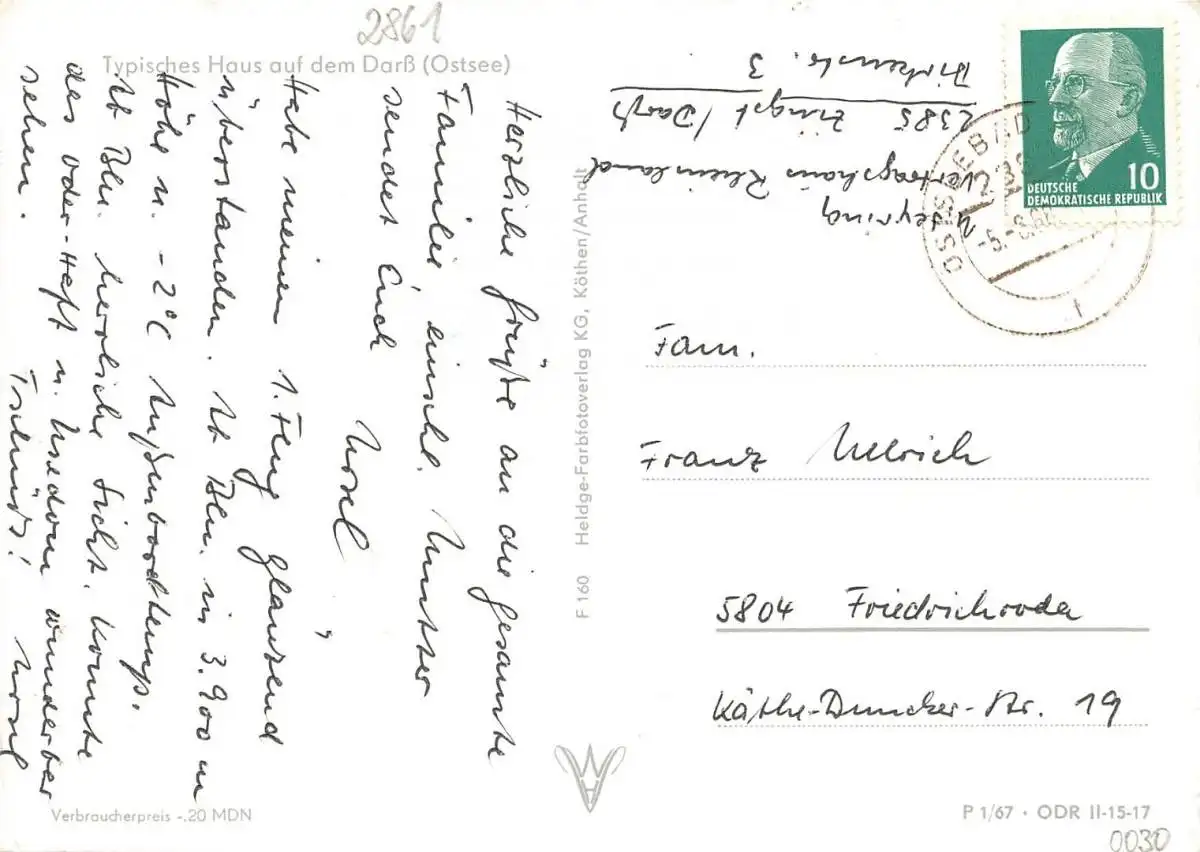 2861
Typisches Haus auf dem Darß (Ostsee)
Herzliche Grüße an die gesamte
Familie einschl. Mutter
sendet Euch
Ursel
Habe meinen 1. Flug glänzend
überstanden. Üb. Bln. in 3.900 m
Höhe u. -2°C Außenbordtemp.
Üb. Bln. herrliche Sicht. Konnte
das Oder-Haff u. Usedom wunderbar
sehen.
Tschüß! Ursel
Verbraucherpreis -.20 MDN
F 160 Heldge-Farbfotoverlag KG, Köthen/Anhalt
U. Meyring
Vertragshaus Rheinland
2385 Zingst/Darß
Birkenstr. 3
DEUTSCHE
DEMOKRATISCHE REPUBLIK
10
OSTSEEBAD
Fam.
Franz Ullrich
5804 Friedrichroda
Käthe-Duncker-Str. 19
P 1/67 · ODR II-15-17
0030